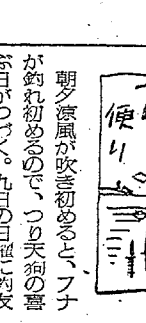 便り
朝夕涼風が吹き初めると、フナ
が釣れ初めるので、つり天狗の喜
ぶ日がつづく。九日の日曜に釣友